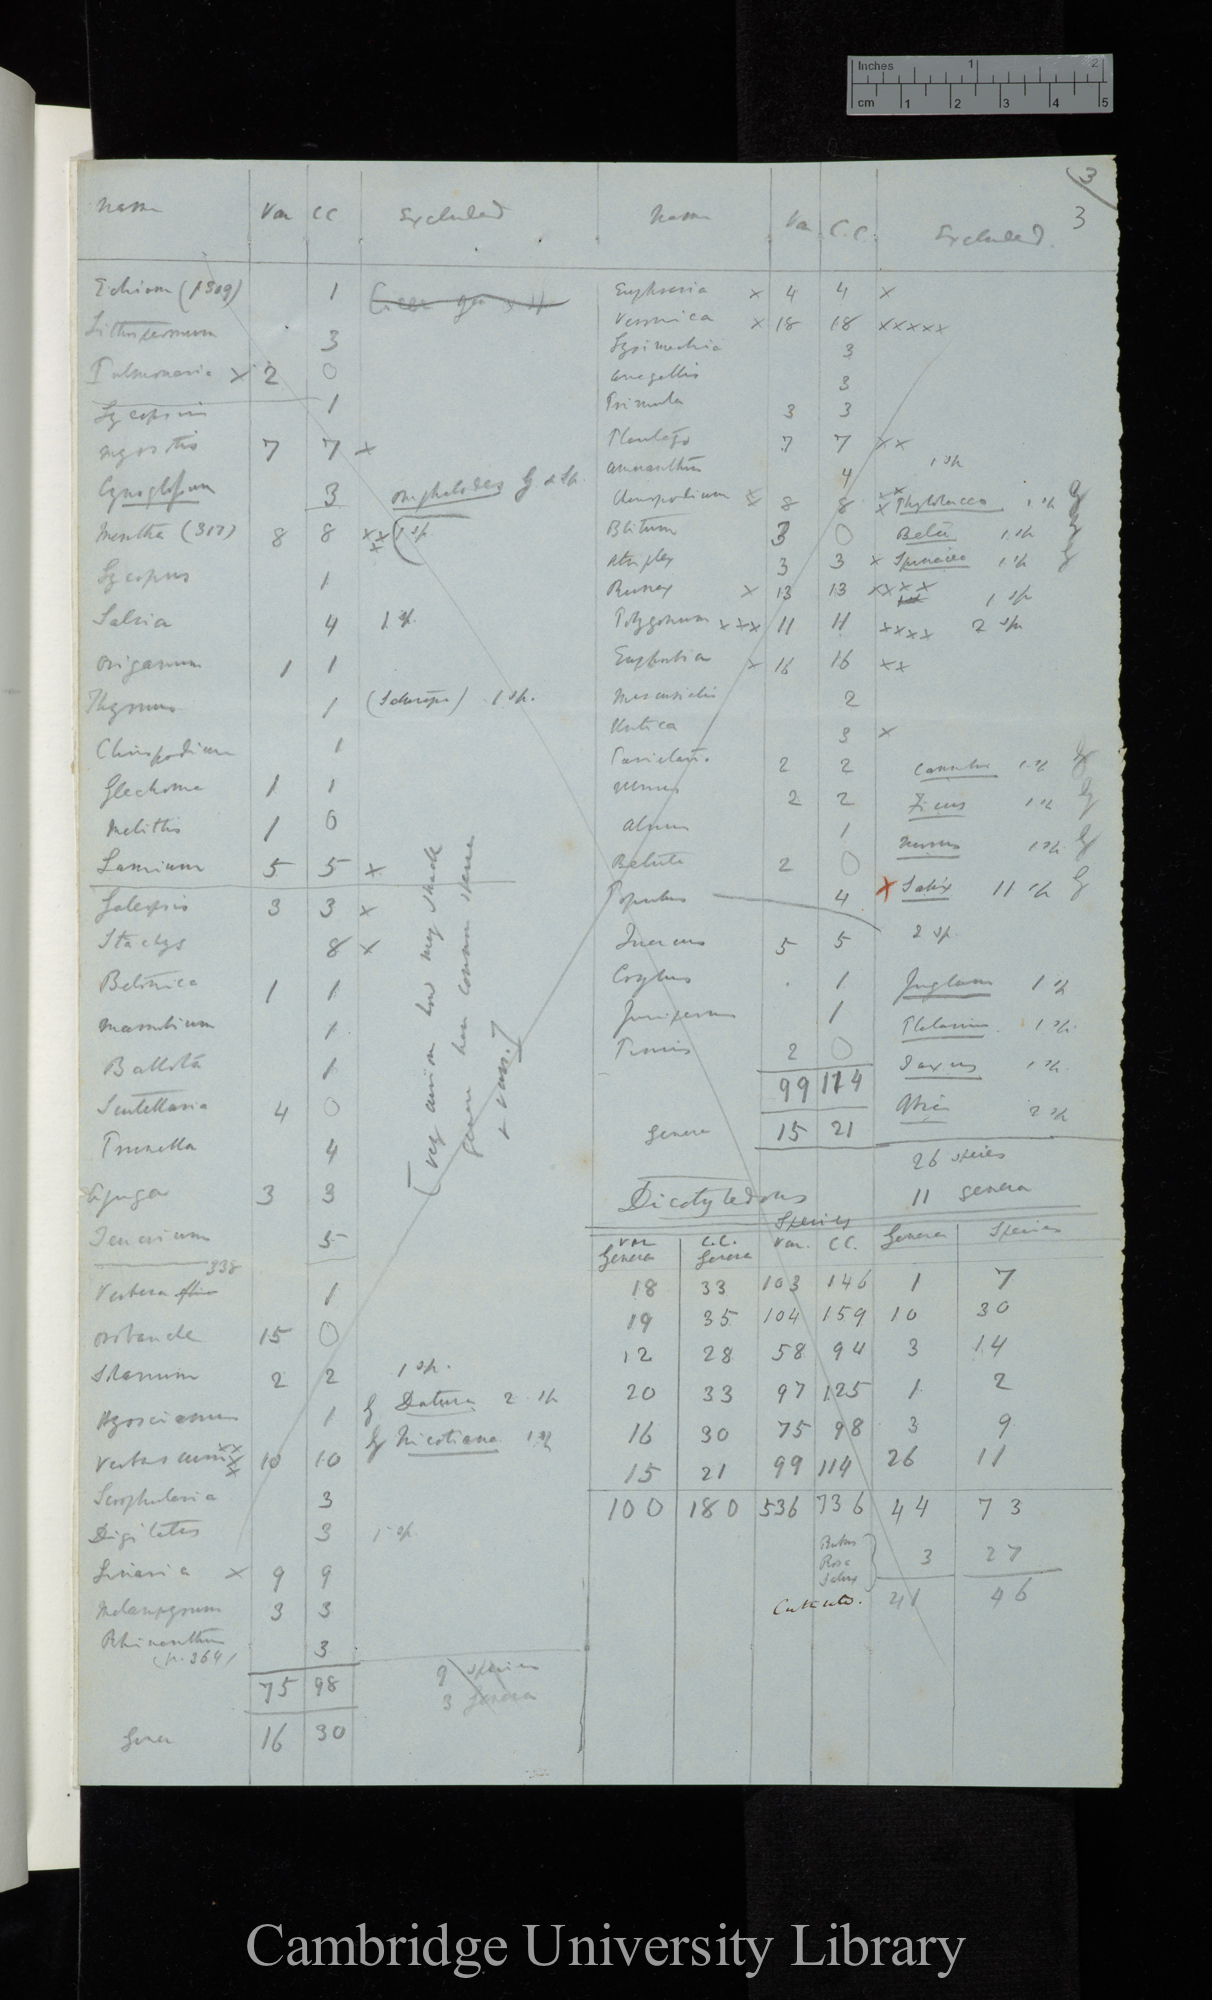 Inches 1 2
cm 1 2 3 4 5
3
3
Name Var CC Excluded
Echium (1309) 1
Lithospermum 3
Pulmonaria x 2 0
Lycopsis 1
Myosotis 7 7 x
Cynoglossum 3 Omphalodes G & Sp.
Mentha (317) 8 8 xxx 1 sp.
Lycopus 1
Salvia 4 1 sp.
Origanum 1 1
Thymus 1 (Satureja) 1 sp.
Clinopodium 1
Glechoma 1 1
Melittis 1 0
Lamium 5 5 x
Galeopsis 3 3 x
Stachys 8 x
Betonica 1 1
Marrubium 1
Ballota 1
Scutellaria 4 0
Prunella 4
Ajuga 3 3
Teucrium 5
338
Verbena 1
Orobanche 15 0
Solanum 2 2 1 sp.
Hyoscyamus 1 G Datura 2 sp
Verbascum xxxx 10 10 G Nicotiana 1 sp
Scrophularia 3
Digitalis 3 1 sp.
Linaria x 9 9
Melampyrum 3 3
Rhinanthus 3
(p. 364)
75 98 9 species
3 genera
Genera 16 30
[very curious how many small
genera have common species
& vars.]
Name Var C.C. Excluded
Euphrasia x 4 4 x
Veronica x 18 18 xxxxx
Lysimachia 3
Anagallis 3
Primula 3 3
Plantago 7 7 xx
Amaranthus 4 1 sp
Chenopodium x 8 8 xxx Phytolacca 1 sp G
Blitum 3 0 Beta 1 sp G
Atriplex 3 3 x Spinacea 1 sp G
Rumex x 13 13 xxxx 1 sp
Polygonum xxx 11 11 xxxx 2 sp
Euphorbia x 16 16 xx
Mercurialis 2
Urtica 3 x
Parietaria 2 2 Cannabis 1 sp G
Ulmus 2 2 Ficus 1 sp G
Alnus 1 Morus 1 sp. G
Betula 2 0
Populus 4 x Salix 11 sp G
Quercus 5 5 2 sp.
Corylus 1 Juglans 1 sp
Juniperus 1 Platanus 1 sp.
Pinus 2 0 Taxus 1 sp.
99 114 Abies 2 sp
Genera 15 21
26 species
11 genera
Dicotyledons
Species
Var Genera C.C. Genera Var. CC. Genera Species
18 33 103 146 1 7
19 35 104 159 10 30
12 28 58 94 3 14
20 33 97 125 1 2
16 30 75 98 3 9
15 21 99 114 26 11
100 180 536 736 44 73
Rubus
Rosa
Salix } 3 27
41 46
Cambridge University Library